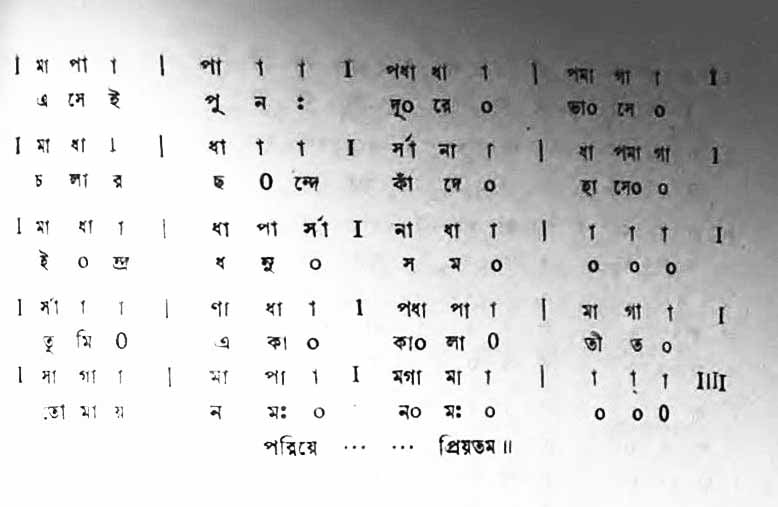 I মা পা া | পা া া I পধা ধা া | পমা গা া I
এ সে ই পূ ন ঃ দূ০ রে ০ ভা০ সে ০
I মা ধা া | ধা া া I র্সা না া | ধা পমা গা I
চ লা র ছ 0 ন্দে কাঁ দে ০ হা সে০ ০
I মা ধা া | ধা পা র্সা I না ধা া | া া া I
ই ০ ন্দ্র ধ নু ০ স ম ০ ০ ০ ০
I র্সা া া | ণা ধা া I পধা পা া | মা গা া I
তু মি 0 এ কা ০ কা০ লা 0 তী ত ০
I সা গা া | মা পা া I মগা মা া | া া া IIII
তো মা য় ন মঃ ০ ন০ মঃ ০ ০ ০ 0
পরিয়ে ... ... প্রিয়তম॥